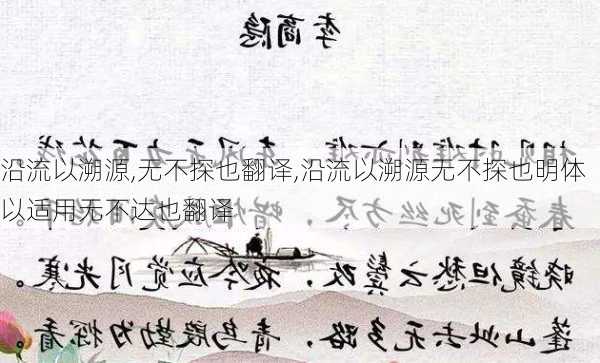 李商隐
相见时难别亦难，东风无力百花残
沿流以溯源,无不探也翻译,沿流以溯源无不探也明体
以适用无不达也翻译
春蚕到死丝方尽，蜡炬
晓镜但愁云鬓改，夜吟应觉月光寒。
蓬山此去无多路，青鸟殷勤为探看。